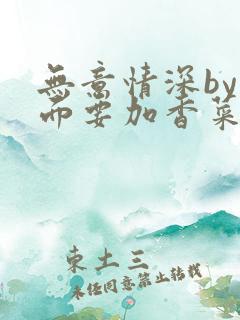 無意情深by
而要加香菜
東土三
未经同意禁止转载